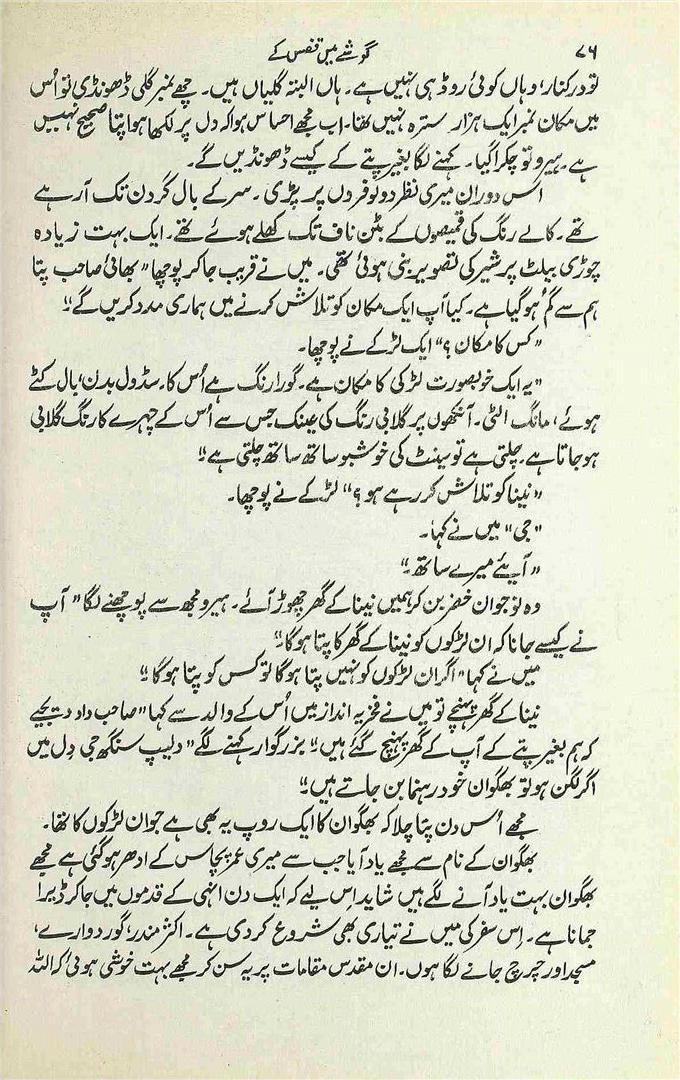 ۷۶
گوشے میں قفس کے
تو درکنار، وہاں کوئی روڈ ہی نہیں ہے۔ ہاں البتہ گلیاں ہیں۔ چھے نمبر گلی ڈھونڈی تو اُس
میں مکان نمبر ایک ہزار سترہ نہیں تھا۔ اب مجھے احساس ہوا کہ دل پر لکھا ہوا پتا صحیح نہیں
ہے۔ ہیرو تو چکرا گیا۔ کہنے لگا بغیر پتے کے کیسے ڈھونڈیں گے۔
اس دوران میری نظر دو نوفروں پر پڑی۔ سر کے بال گردن تک آ رہے
تھے۔ کالے رنگ کی قمیصوں کے بٹن ناف تک کھلے ہوئے تھے۔ ایک بہت زیادہ
چوڑی بیلٹ پر شیر کی تصویر بنی ہوئی تھی۔ میں نے قریب جا کر پوچھا "بھائی صاحب پتا
ہم سے گم ہو گیا ہے۔ کیا آپ ایک مکان کو تلاش کرنے میں ہماری مدد کریں گے"؟
"کس کا مکان؟" ایک لڑکے نے پوچھا۔
"یہ ایک خوبصورت لڑکی کا مکان ہے۔ گورا رنگ ہے اُس کا۔ سڈول بدن، بال کٹے
ہوئے، مانگ الٹی۔ آنکھوں پر گلابی رنگ کی عینک جس سے اُس کے چہرے کا رنگ گلابی
ہو جاتا ہے۔ چلتی ہے تو سینٹ کی خوشبو ساتھ ساتھ چلتی ہے"۔
"نینا کو تلاش کر رہے ہو؟" لڑکے نے پوچھا۔
"جی" میں نے کہا۔
"آیئے میرے ساتھ۔"
وہ نوجوان خضر بن کر ہمیں نینا کے گھر چھوڑ آئے۔ ہیرو مجھ سے پوچھنے لگا "آپ
نے کیسے جانا کہ ان لڑکوں کو نینا کے گھر کا پتا ہوگا"؟
میں نے کہا "اگر ان لڑکوں کو نہیں پتا ہوگا تو کس کو پتا ہوگا"؟
نینا کے گھر پہنچے تو میں نے فخریہ انداز میں اُس کے والد سے کہا "صاحب داد دیجیے
کہ ہم بغیر پتے کے آپ کے گھر پہنچ گئے ہیں"۔ بزرگوار کہنے لگے "دلیپ سنگھ جی دِل میں
اگر لگن ہو تو بھگوان خود رہنما بن جاتے ہیں"۔
مجھے اُس دن پتا چلا کہ بھگوان کا ایک روپ یہ بھی ہے جو ان لڑکوں کا تھا۔
بھگوان کے نام سے مجھے یاد آیا جب سے میری عمر پچاس کے ادھر ہو گئی ہے مجھے
بھگوان بہت یاد آنے لگے ہیں شاید اِس لیے کہ ایک دن انہی کے قدموں میں جا کر ڈیرا
جمانا ہے۔ اِس سفر کی میں نے تیاری بھی شروع کر دی ہے۔ اکثر مندر، گوردوارے،
مسجد اور چرچ جانے لگا ہوں۔ ان مقدس مقامات پر یہ سن کر مجھے بہت خوشی ہوئی کہ اللہ